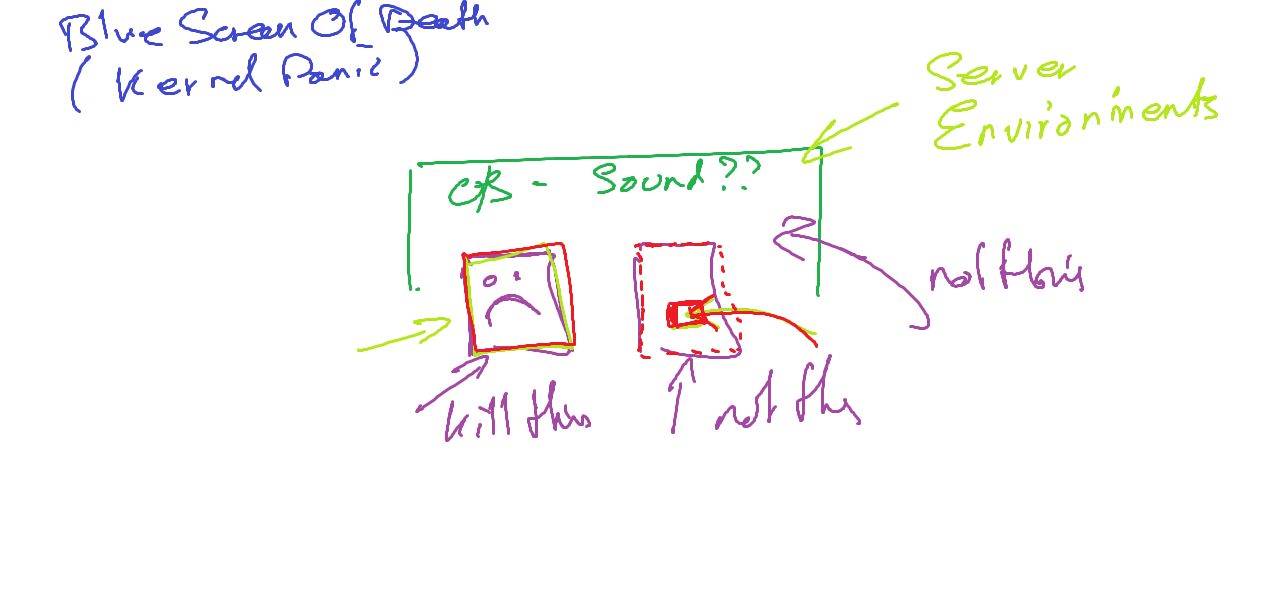 Blue Screen Of Death
(Kernel Panic)
Server
Environments
O/S - Sound??
not this
kill this
not this